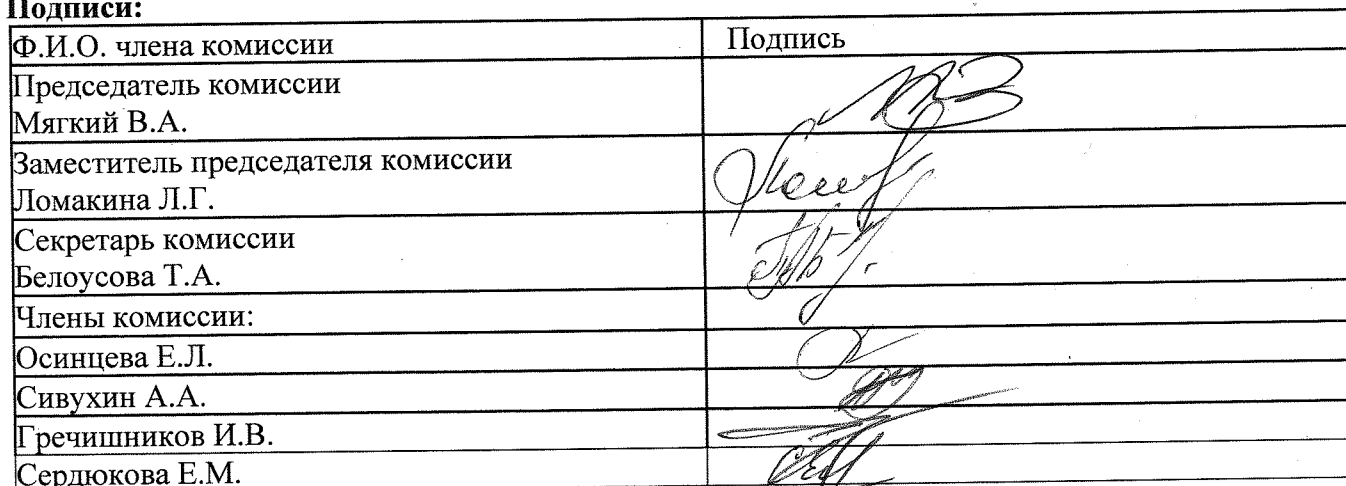 Подписи:
Ф.И.О. члена комиссии Подпись
Председатель комиссии
Мягкий В.А.
Заместитель председателя комиссии
Ломакина Л.Г.
Секретарь комиссии
Белоусова Т.А.
Члены комиссии:
Осинцева Е.Л.
Сивухин А.А.
Гречишников И.В.
Сердюкова Е.М.